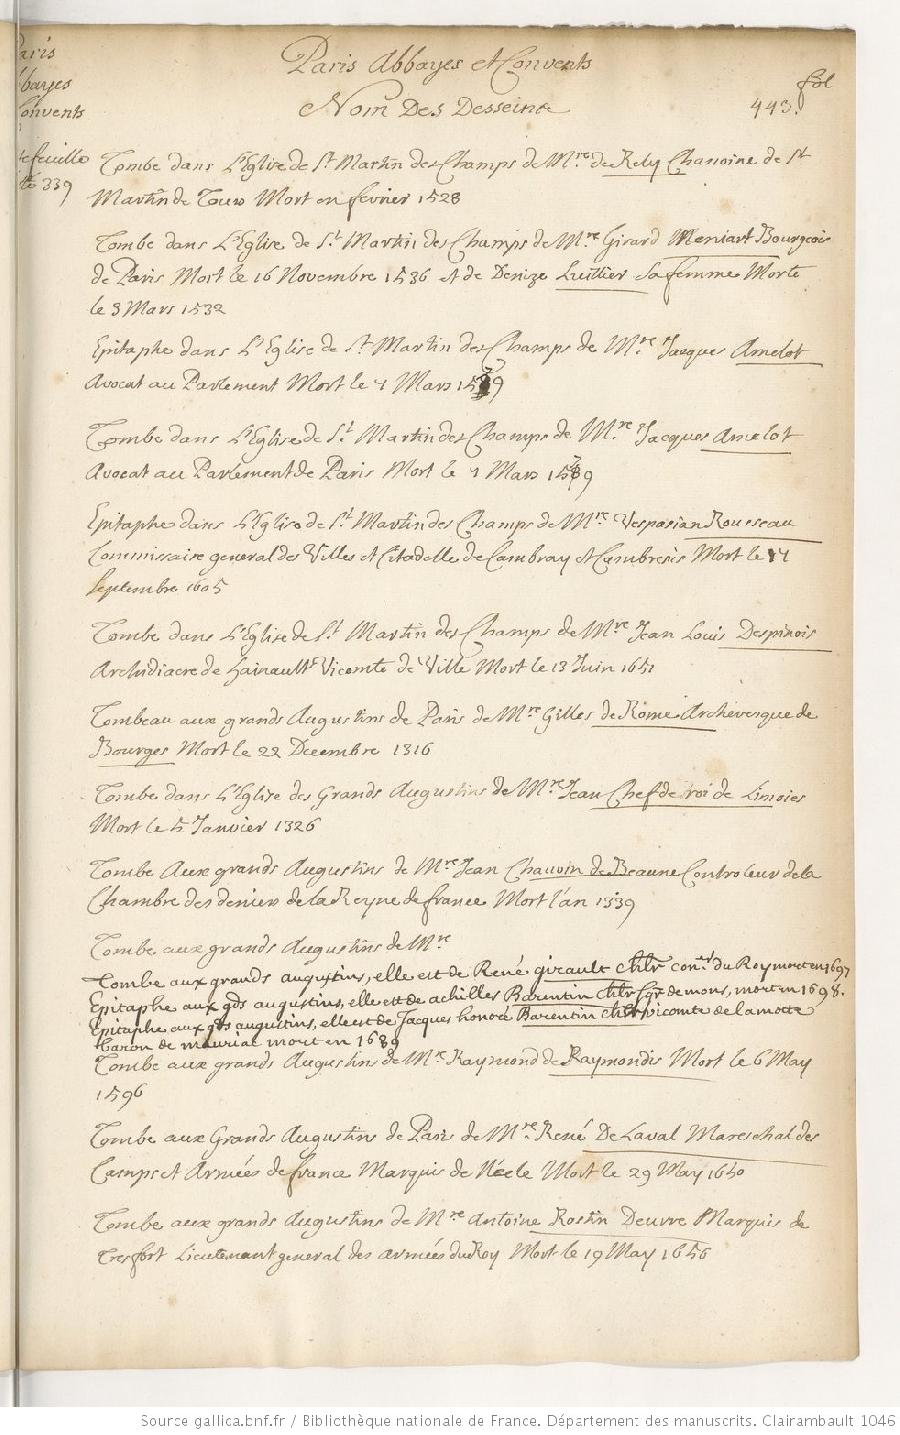 Paris
Abbayes
Convents
Paris Abbayes et Convents
Nom Des Desseins
fol
443.
339
Tombe dans L'Eglise de St Martin des Champs de Mre de Rely Chanoine de St
Martin de Tours Mort en fevrier 1528
Tombe dans L'Eglise de St Martin des Champs de Mre Girard Meniart Bourgeois
de Paris Mort le 16 Novembre 1536 et de Denize Luillier sa femme Morte
le 3 Mars 1532
Epitaphe dans L'Eglise de St Martin des Champs de Mre Jacques Amelot
Avocat au Parlement Mort le 1 Mars
Tombe dans L'Eglise de St Martin des Champs de Mre Jacques Amelot
Avocat au Parlement de Paris Mort le 1 Mars
Epitaphe dans L'Eglise de St Martin des Champs de Mre Vespasian Rousseau
Commissaire general des Villes et Citadelle de Cambray et Cambresis Mort le
Septembre 1605
Tombe dans L'Eglise de St Martin des Champs de Mre Jean Louis Despinois
Archidiacre de Hainault Vicomte de Ville Mort le 13 Juin 1651
Tombeau aux grands Augustins de Paris de Mre Gilles de Rome Archevesque de
Bourges Mort le 22 Decembre 1316
Tombe dans L'Eglise des Grands Augustins de Mre Jean Chef de roi de Limoies
Mort le 5 Janvier 1326
Tombe Aux grands Augustins de Mre Jean Chauvin de Beaune Controleur de la
Chambre des deniers de la Reyne de france Mort l'an 1539
Tombe aux grands Augustins de Mre
Tombe aux grands augustins, elle est de René girault chlr coner du Roy mort en 1697
Epitaphe aux gds augustins, elle est de achilles Barentin chlr sgr de mons, mort en 1698.
Epitaphe aux gds augustins, elle est de Jacques honoré Barentin chlr vicomte de la motte
baron de mauriac mort en 1689
Tombe aux grands Augustins de Mre Raymond de Raymondis Mort le 6 May
1596
Tombe aux Grands Augustins de Paris de Mre René De Laval Mareschal des
Camps et Armées de france Marquis de Néele Mort le 29 May 1650
Tombe aux grands Augustins de Mre Antoine Rostin Deurre Marquis de
Tresfort Lieutenant general des armées du Roy Mort le 19 May 1656
Source gallica.bnf.fr / Bibliothèque nationale de France. Département des manuscrits. Clairambault 1046